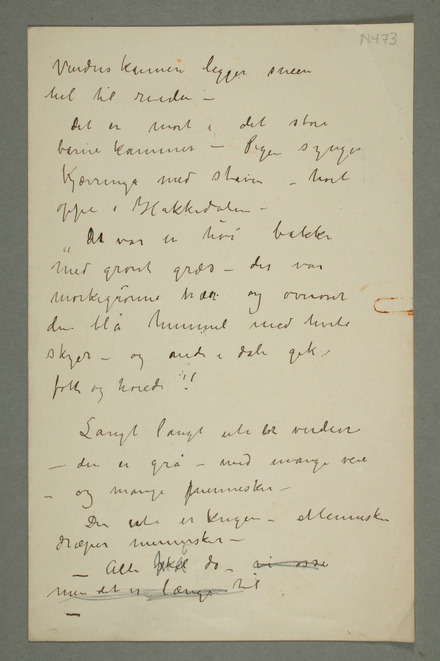 N473
Vinduskarmen legger sneen
helt til ruden –
Det er mørt i det store
barnekammer – Pigen synger
Kjærringa med staven – høit
oppe i Hakkedalen –
„Det var en høi bakke
med grønt græs – der var
mørkegrønne trær og ovenover
den blå himmel med hvite
skyer – og nede i dale gik
folk og
Langt langt ute verden
– den er grå – med mange veie
– og mange mennesker –
Der ute er krigen – Mennesker
dræper mennesker –
– Alle skal dø – vi osse
men det er længe til
–